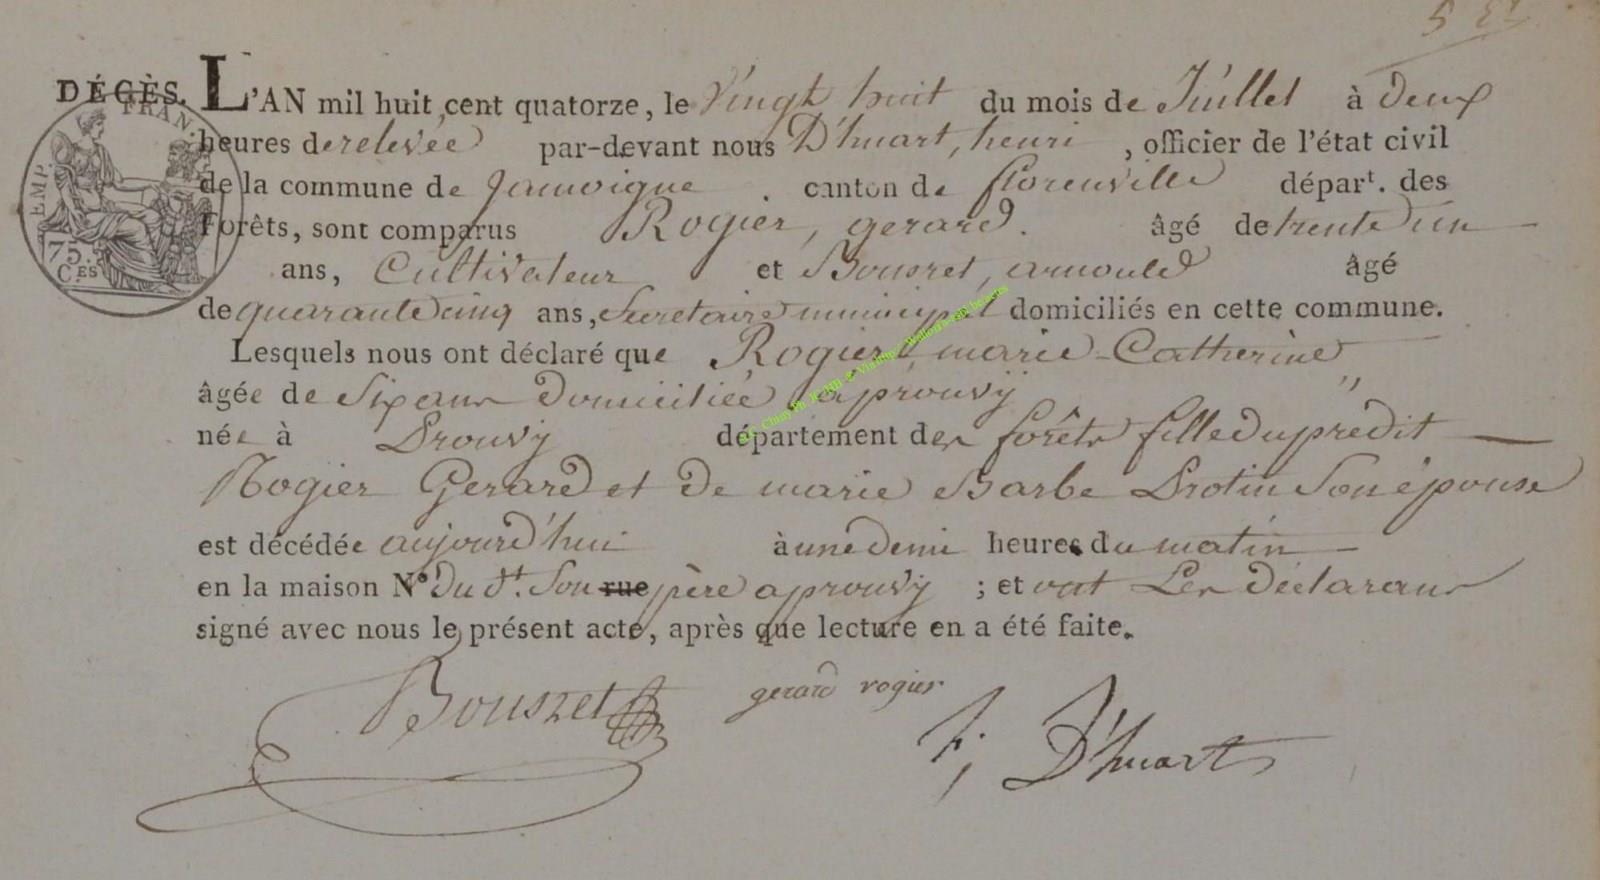 DÉCÈS. L'AN mil huit cent quatorze, le Vingt huit du mois de Juillet à deux
heures de relevée par-devant nous D'huart, henri, officier de l'état civil
de la commune de Jamoigne canton de florenville départ. des
Forêts, sont comparus Rogier, gerard. âgé de trente un
ans, Cultivateur et Bouszet, arnould âgé
de quarante cinq ans, Secretaire municipal domiciliés en cette commune.
Lesquels nous ont déclaré que Rogier, marie-Catherine
âgée de Six ans domiciliée a prouvÿ
née à Prouvÿ département des forêts fille du prédit
Rogier Gerard et de marie Barbe Protin Son épouse
est décédée aujourd'hui à une demi heure du matin
en la maison N° du dt. Son rue père a prouvÿ ; et ont Les déclarans
signé avec nous le présent acte, après que lecture en a été faite.
Bouszet gerard rogier
D'huart
FRAN
EMP.
75.
C.ES